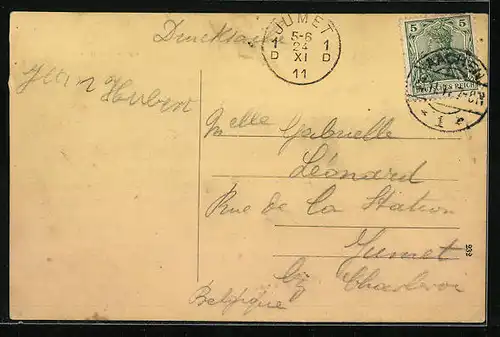 Drucksache
JUMET
1 5-6 1
D 24 D
XI
11
5 5
DEUTSCHES REICH
AACHEN
1 e
Jean
Hubert
Melle Gabrielle
Léonard
Rue de la Station
Jumet
by Charleroi
Belgique
933